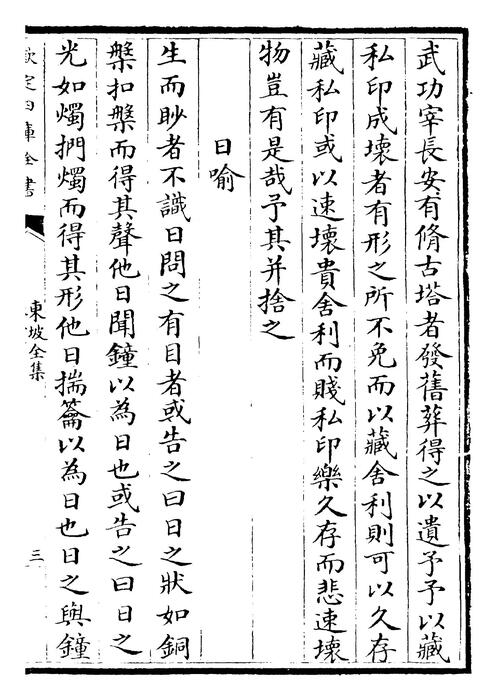 武功宰長安有脩古塔者發舊葬得之以遺予予以藏
私印成壞者有形之所不免而以藏舍利則可以久存
藏私印或以速壞貴舍利而賤私印樂久存而悲速壞
物豈有是哉予其并捨之
日喻
生而眇者不識日問之有目者或告之曰日之狀如銅
槃扣槃而得其聲他日聞鐘以為日也或告之曰日之
光如燭捫燭而得其形他日揣籥以為日也日之與鐘
欽定四庫全書
東坡全集
三